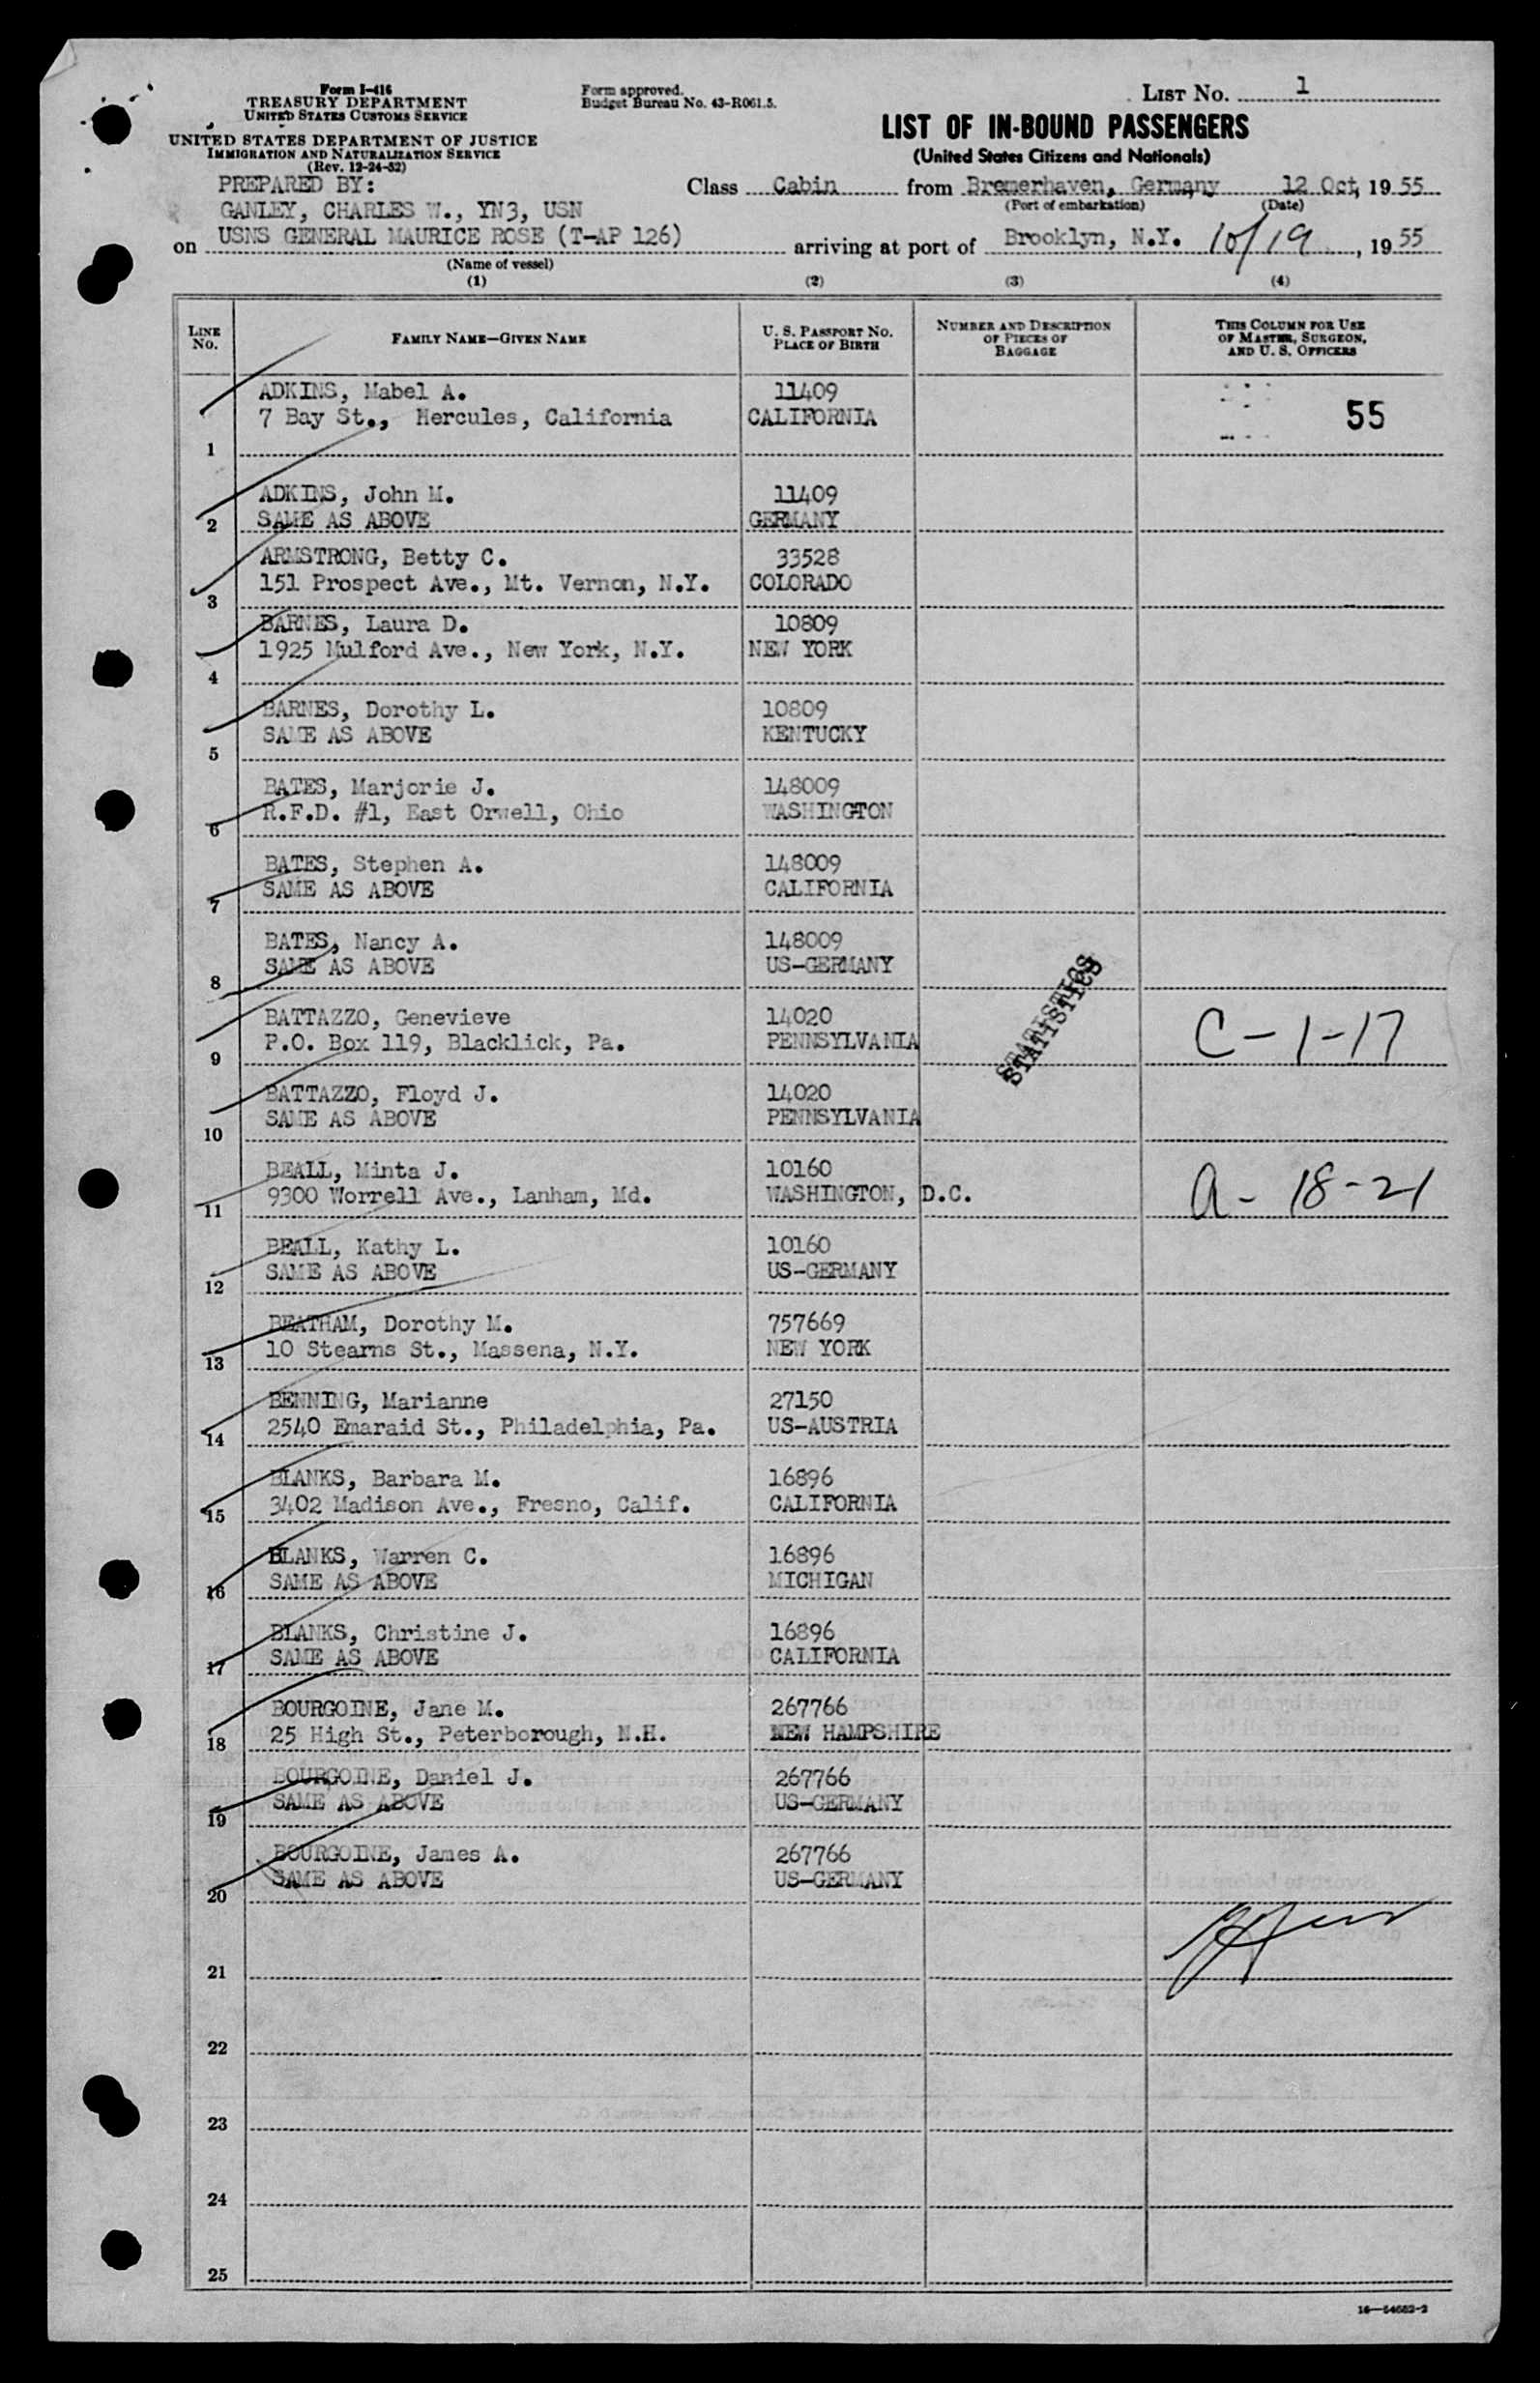 Form I-416
TREASURY DEPARTMENT
UNITED STATES CUSTOMS SERVICE
UNITED STATES DEPARTMENT OF JUSTICE
IMMIGRATION AND NATURALIZATION SERVICE
(Rev. 12-24-52)
Form approved.
Budget Bureau No. 43-R061.5.
LIST NO. 1
LIST OF IN-BOUND PASSENGERS
(United States Citizens and Nationals)
PREPARED BY:
GANLEY, CHARLES W., YN3, USN
Class Cabin from Bremerhaven, Germany 12 Oct, 19 55
(Port of embarkation) (Date)
on USNS GENERAL MAURICE ROSE (T-AP 126) arriving at port of Brooklyn, N.Y. 10/19, 19 55
(Name of vessel)
(1) (2) (3) (4)
LINE NO.
FAMILY NAME—GIVEN NAME
U. S. PASSPORT NO.
PLACE OF BIRTH
NUMBER AND DESCRIPTION
OF PIECES OF
BAGGAGE
THIS COLUMN FOR USE
OF MASTER, SURGEON,
AND U. S. OFFICERS
ADKINS, Mabel A. 11409
7 Bay St., Hercules, California CALIFORNIA 55
1
ADKINS, John M. 11409
2 SAME AS ABOVE GERMANY
ARMSTRONG, Betty C. 33528
151 Prospect Ave., Mt. Vernon, N.Y. COLORADO
3
BARNES, Laura D. 10809
1925 Mulford Ave., New York, N.Y. NEW YORK
4
BARNES, Dorothy L. 10809
SAME AS ABOVE KENTUCKY
5
BATES, Marjorie J. 148009
R.F.D. #1, East Orwell, Ohio WASHINGTON
6
BATES, Stephen A. 148009
SAME AS ABOVE CALIFORNIA
7
BATES, Nancy A. 148009
SAME AS ABOVE US-GERMANY
8
STATISTICS
STATISTICS
BATTAZZO, Genevieve 14020
P.O. Box 119, Blacklick, Pa. PENNSYLVANIA C-1-17
9
BATTAZZO, Floyd J. 14020
SAME AS ABOVE PENNSYLVANIA
10
BEALL, Minta J. 10160
9300 Worrell Ave., Lanham, Md. WASHINGTON, D.C. A-18-21
11
BEALL, Kathy L. 10160
SAME AS ABOVE US-GERMANY
12
BEATHAM, Dorothy M. 757669
10 Stearns St., Massena, N.Y. NEW YORK
13
BENNING, Marianne 27150
2540 Emaraid St., Philadelphia, Pa. US-AUSTRIA
14
BLANKS, Barbara M. 16896
3402 Madison Ave., Fresno, Calif. CALIFORNIA
15
BLANKS, Warren C. 16896
SAME AS ABOVE MICHIGAN
16
BLANKS, Christine J. 16896
SAME AS ABOVE CALIFORNIA
17
BOURGOINE, Jane M. 267766
25 High St., Peterborough, N.H. NEW HAMPSHIRE
18
BOURGOINE, Daniel J. 267766
SAME AS ABOVE US-GERMANY
19
BOURGOINE, James A. 267766
SAME AS ABOVE US-GERMANY
20
21
22
23
24
25
16—54682-2